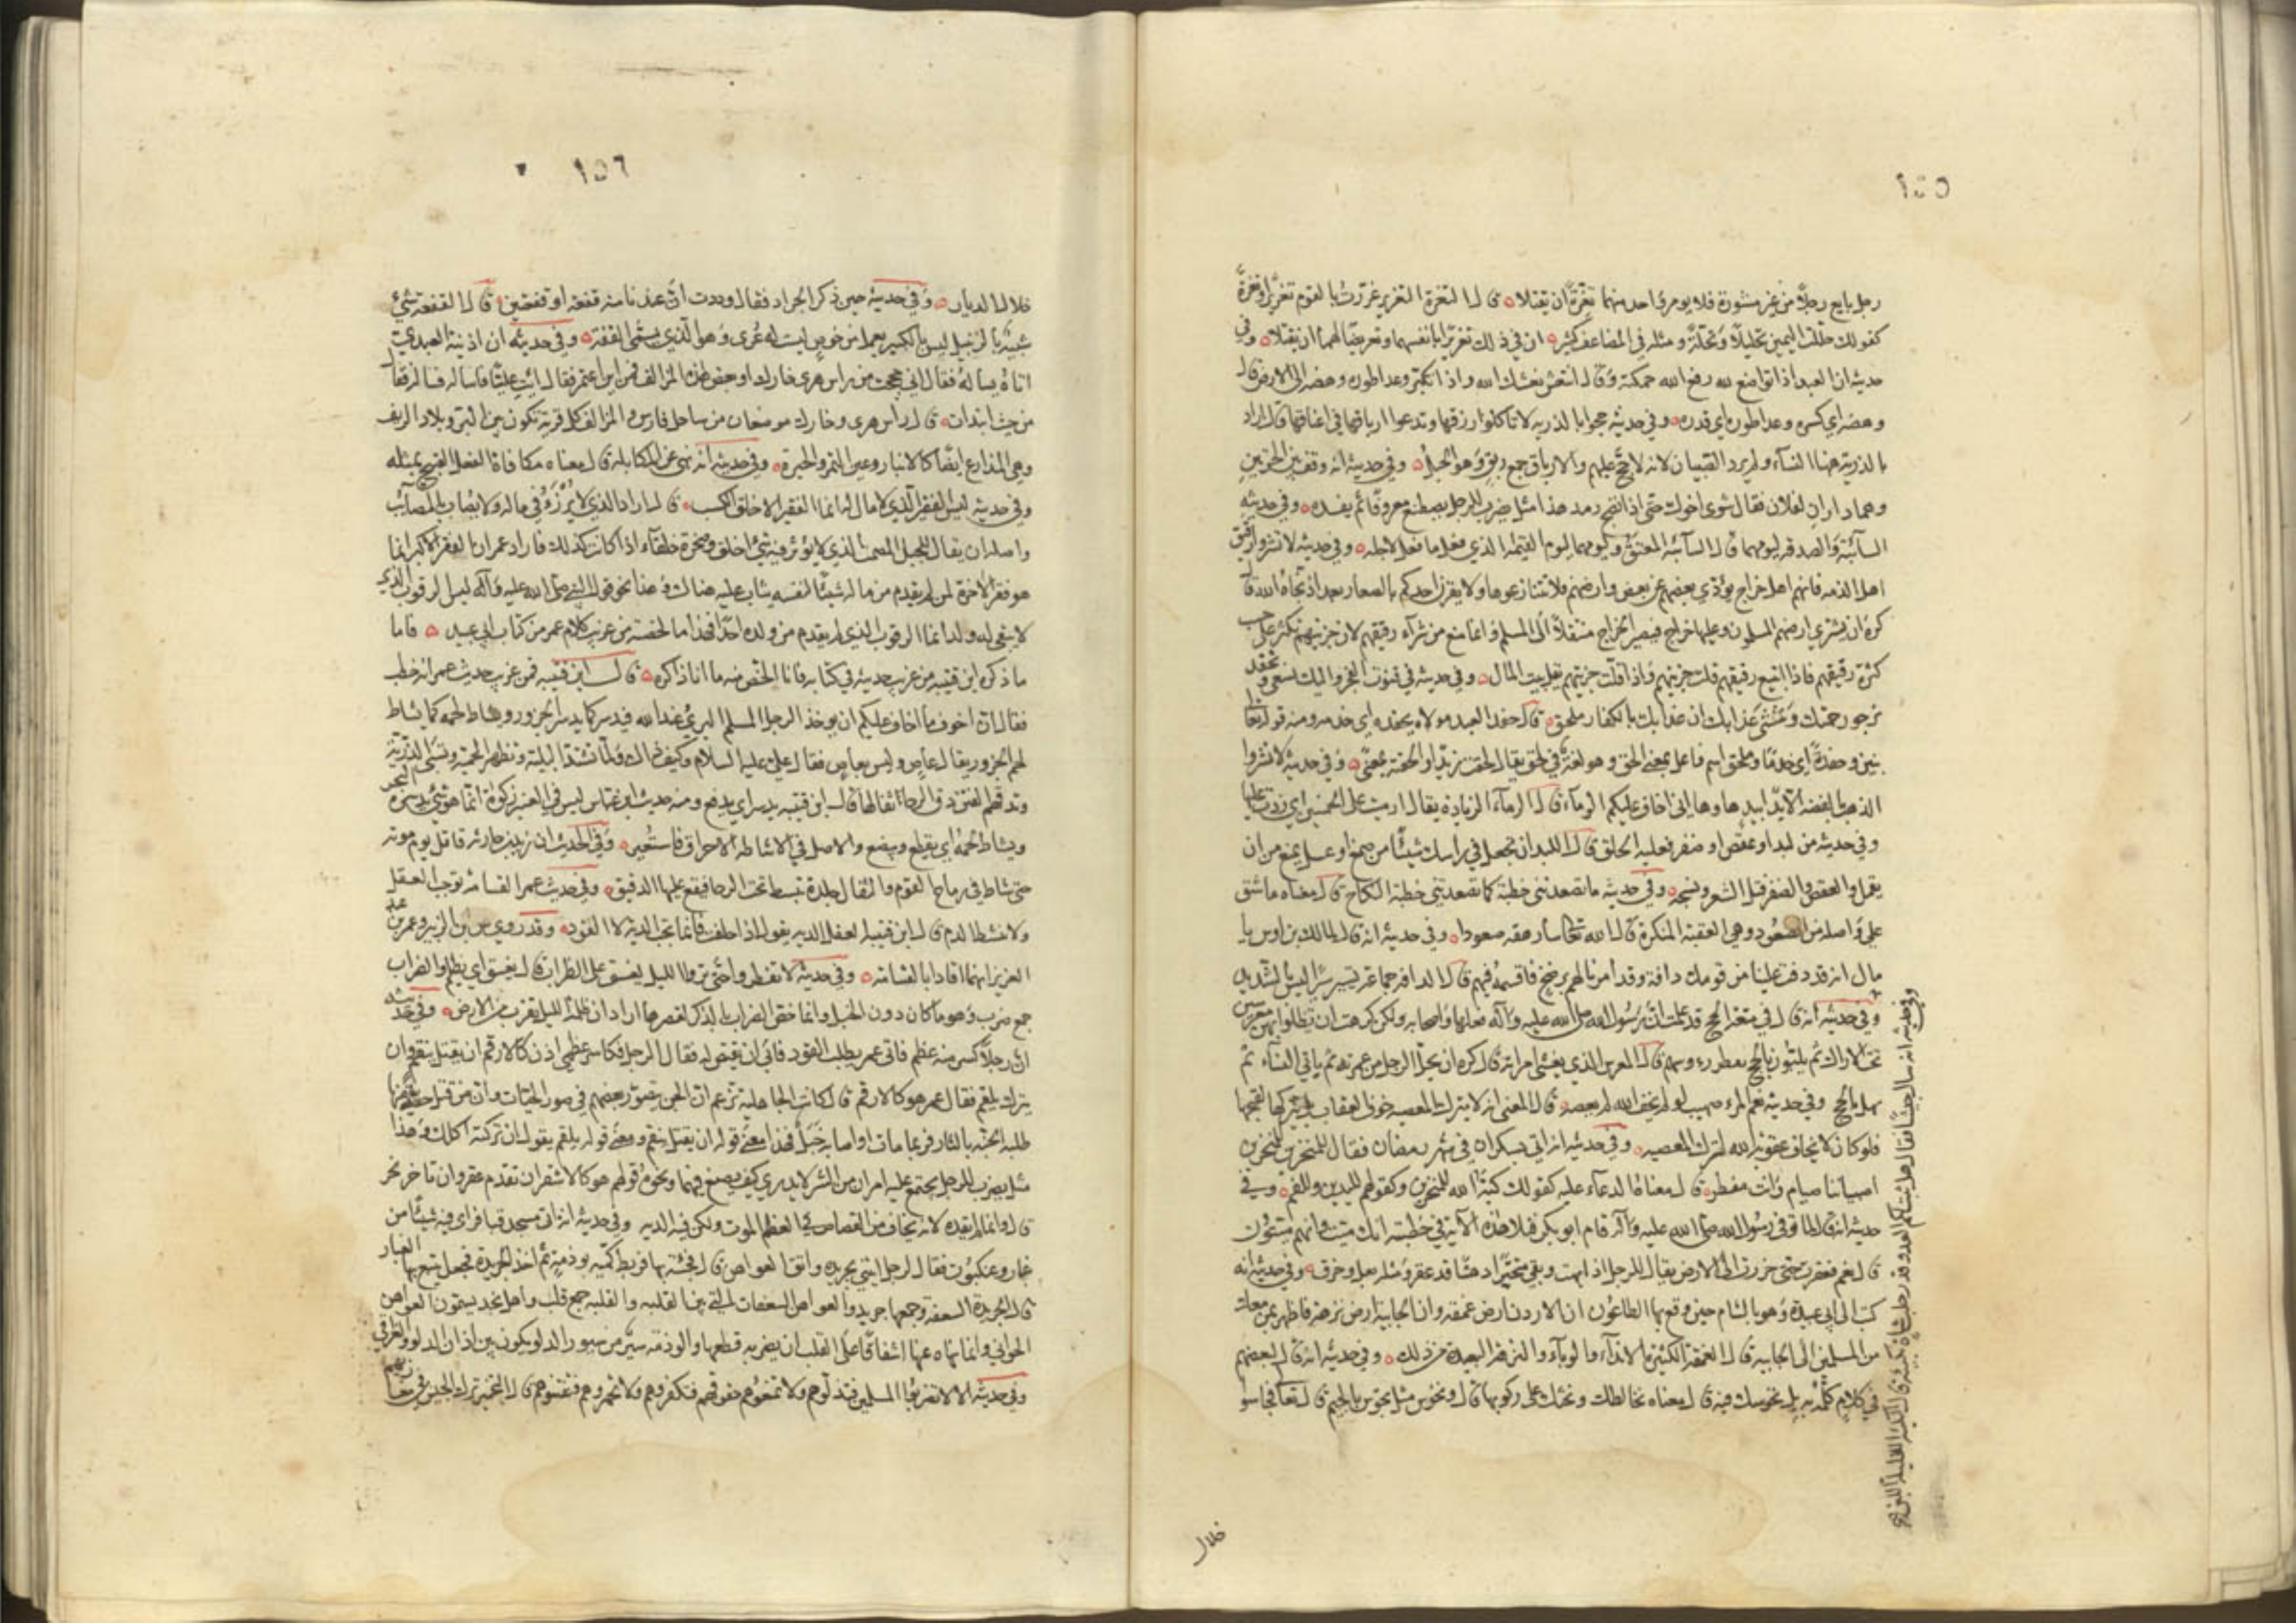 ١٥٥
رجل بايع رجلاً من غير مشورة فلا يومر واحد منهما تغرّةً ان يقتلا قال التغرة التغرير غررت بالقوم تغريراً وتغرة
كقولك حللت اليمين تحليلاً وتحلّةً ومثله في المضاعف كثير ان في ذلك تغريراً بانفسهما وتعريضاً لهما ان يقتلا وفي
حديثه ان العبد اذا تواضع لله رفع الله حكمته وقال انتعش نعشك الله واذا تكبّر وعدا طوره وهصه الى الارض قال
وهصه اي كسره وعدا طوره اي قدره وفي حديثه حجوا بالذرية لا تاكلوا ارزاقها وتدعوا ارباقها في اعناقها قال اراد
بالذرية هنا النساء ولم يرد الصبيان لانه لا حجّ عليهم والارباق جمع ربق وهو الحبل وفي حديثه انه وقف بين الحرتين
وهما داران لفلان فقال شوى اخوك حتى اذا انضج رمد هذا مثل يضرب للرجل يصطنع معروفا ثم يفسده وفي حديثه
السائبة والصدقة ليومهما قال السآئبة المعتق وليومهما ليوم القيمة الذي فعل ما فعل لاجله وفي حديثه لا تشتروا رقيق
اهل الذمه فانهم اهل خراج يؤدي بعضهم عن بعض وارضهم فلا تبتاعوها ولا يقرن احدكم بالصغار بعد اذ نجاه الله قال
كره ان يشتري ارضهم المسلمون وعليها خراج فيصير الخراج منتقلاً الى المسلم وانما منع من شرآء رقيقهم لان جزيتهم تكثر على حسب
كثرة رقيقهم فاذا ابتيع رقيقهم قلت جزيتهم واذا قلت جزيتهم يقل بيت المال وفي حديثه في قنوت الفجر واليك نسعى ونحفد
نرجو رحمتك ونخشى عذابك ان عذابك بالكفار ملحق قال حفد العبد مولاه يحفده اي خدمه ومنه قوله تعالى
بنين وحفدةً اي خدمًا وملحق اسم فاعل بمعنى الحق وهو لغة في لحق يقال لحقت زيدًا والحقته بمعنًى وفي حديثه لا تشتروا
الذهب بالفضه الا يدًا بيدٍ هاوها اني اخاف عليكم الرمآء قال الرمآء الزيادة يقال ارميت على الخمسين اي زدت عليها
وفي حديثه من لبد او عقص او ضفر فعليه الحلق قال اللبد ان تجعل في راسك شيئًا من صمغ او عسل يمنع من ان
يقمل والعقص والضفر فتل الشعر ونسجه وفي حديثه ما تصعدتني خطبة كما تصعدتني خطبة النكاح قال معناه ما شق
علي واصله من الصعود وهي العقبة المنكرة قال الله تعالى سأرهقه صعودا وفي حديثه انه قال لمالك بن اوس يا
مال انه قد دفت علينا من قومك دافة وقد امرنا لهم برضخ فاقسمه فيهم قال الدافة جماعة تسير سيرًا ليس بالشديد
وفي حديثه انه قال في متعة الحج قد علمت ان رسول الله صلى الله عليه وآله فعلها واصحابه ولكن كرهت ان يظلوا بهن معرسين
تحت الاراك ثم يلبّون بالحج تقطر رءوسهم قال المعرس الذي يغشى امراته قال كره ان يحل الرجل من عمرته ثم ياتي النسآء ثم
يهل بالحج وفي حديثه نعم المرء صهيب لو لم يخف الله لم يعصه قال المعنى انه لا يترك المعصيه خوف العقاب بل يتركها لقبحها
فلو كان لا يخاف عقوبة الله لترك المعصيه وفي حديثه انه اتي بسكران في شهر رمضان فقال للمنخرين للمنخرين
اصبياننا صيام وانت مفطر قال معناه الدعآء عليه كقولك كبّه الله للمنخرين وكقولهم لليدين وللفم وفي
حديثه انه قال لما توفي رسول الله صلى الله عليه وآله قام ابو بكر فتلا هذه الآية في خطبته انك ميت وانهم ميّتون
قال عمر فعقرت حتى خررت الى الارض يقال للرجل اذا بهت وبقي متحيّرًا دهشًا قد عقر ومثله بعل وخرق وفي حديثه انه
كتب الى ابي عبيدة وهو بالشام حين وقع بها الطاعون ان الاردن ارض غمقه وان الجابية ارض نزهة فاظهر بمن معك
من المسلمين الى الجابيه قال الغمقة الكثيرة الاندآء والوبآء والنزهة البعيدة من ذلك وفي حديثه انه قال لبعضهم
في كلامٍ كلّمه به بل تحوسك فتنة قال معناه تخالطك وتحثك على ركوبها قال وتحوس مثل تجوس بالجيم قال تعالى فجاسوا
خلال
وفي حديثه انه سال جيشًا فقال هل يثبت لكم العدو قدر حلب شاة
١٥٦
خلال الديار وفي حديثه حين ذكر الجراد فقال وددت ان عندنا منه قفعة او قفعتين قال القفعة شيء
شبيه بالزنبيل ليس بالكبير يعمل من خوصٍ ليست له عُرى وهو الذي يسمى القفة وفي حديثه ان اذينة العبدي
اتاه يساله فقال اني حججت من راس هر او خارك او بعض هذه المزالف فمن اين اعتمر فقال ايت عليّا فاساله فساله فقال
من حيث ابتدات قال راس هر وخارك موضعان من ساحل فارس والمزالف كل قرية تكون بين البرّ وبلاد الريف
وهي المذارع ايضًا كالانبار وعين التمر والحيرة وفي حديثه انه نهى عن المكايله قال معناه مكافاة الفعل القبيح بمثله
وفي حديثه ليس الفقير الذي لا مال له انما الفقير الاخلق الكسب قال اراد الذي لا يُرْزَؤُ في ماله ولا يصاب بالمصآئب
واصله ان يقال للجبل المصمت الذي لا يؤثر فيه شيء اخلق وصخرة خلقآء اذا كانت كذلك فاراد عمر ان الفقر الاكبر انما
هو فقر الاخرة لمن لم يقدم من ماله شيئًا لنفسه يثاب عليه هناك وهذا نحو قول النبي صلى الله عليه وآله ليس الرقوب الذي
لا يبقى له ولد انما الرقوب الذي لم يقدم من ولده احدًا فهذا ما لخصته من غريب كلام عمر من كتاب ابي عبيد فاما
ما ذكره ابن قتيبه من غريب حديثه في كتابه فانا الخص منه ما انا ذاكره قال ابن قتيبه فمن غريب حديث عمر انه خطب
فقال ان اخوف ما اخاف عليكم ان يوخذ الرجل المسلم البريء عند الله فيدسر كما يدسر الجزور ويشاط لحمه كما يشاط
لحم الجزور يقال عاصٍ وليس بعاصٍ فقال علي عليه السلام وكيف ذاك ولما تشتد البلية وتظهر الحمية وتسبى الذرية
وتدقهم الفتن دق الرحا بثفالها قال ابن قتيبه يدسر اي يدفع ومنه حديث ابن عباس ليس في العنبر زكوة انما هو شيء يدسره البحر
ويشاط لحمه اي يقطع ويبضع والاصل في الاشاطة الاحراق فاستُعير وفي الحديث ان زيد بن حارثه قاتل يوم موته
حتى شاط في رماح القوم والثفال جلدة تبسط تحت الرحا فيقع عليها الدقيق وفي حديث عمر القسامة توجب العقل
ولا تشيط الدم قال ابن قتيبه العقل الديه يقول اذا حلفت فانما تجب الدية لا القود وقد روي عن ابن الزبير وعمر بن عبد
العزيز انهما اقادا بالقسامه وفي حديثه لا تفطروا حتى تروا الليل يغسق على الظراب قال يغسق اي يظلم والظراب
جمع ظرب وهو ما كان دون الجبل وانما خص الظراب بالذكر لقصرها اراد ان ظلمة الليل تقرب من الارض وفي حديثه
ان رجلاً كسر منه عظم فاتى عمر يطلب القود فابى ان يقتص له فقال الرجل فكاسر عظمي اذن كالارقم ان يقتل ينقم وان
يترك يلقم فقال عمر هو كالارقم قال كانت الجاهليه تزعم ان الجن يتصور بعضهم في صور الحيّات وان من قتل حيّة منها
طلبه الجنّه بالثار فربما مات او اصابه خبل فهذا معنى قوله ان يقتل ينقم ومعنى قوله يلقم يقول ان تركته اكلك وهذا
مثل يضرب للرجل يجتمع عليه امران من الشر لا يدري كيف يصنع فيهما ونحوه قولهم هو كالاشقر ان تقدم عقر وان تاخر نحر
قال وانما لم يقده لانه يخاف من القصاص في العظم الموت ولكن فيه الديه وفي حديثه انه اتى مسجد قبا فراى فيه شيئًا من
غبار وعنكبوت فقال لرجل ائتني بجريده واتق العواهن قال فجئته بها فربط كمّيه بوذمةٍ ثم اخذ الجريدة فجعل يتبع بها الغبار
قال الجريدة السعفة وجمعها جريد والعواهن السعفات التي يلين القلبه والقلبه جمع قلب واهل نجد يسمون العواهن
الخوافي وانما نهاه عنها اشفاقًا على القلب ان يضر به قطعها والوذمه سيرٌ من سيور الدلو يكون بين اذان الدلو والعراقي
وفي حديثه الا لا تضربوا المسلمين فتذلوهم ولا تمنعوهم حقوقهم فتكفروهم ولا تجمروهم فتفتنوهم قال التجمير ترك الجيش في مغازيهم